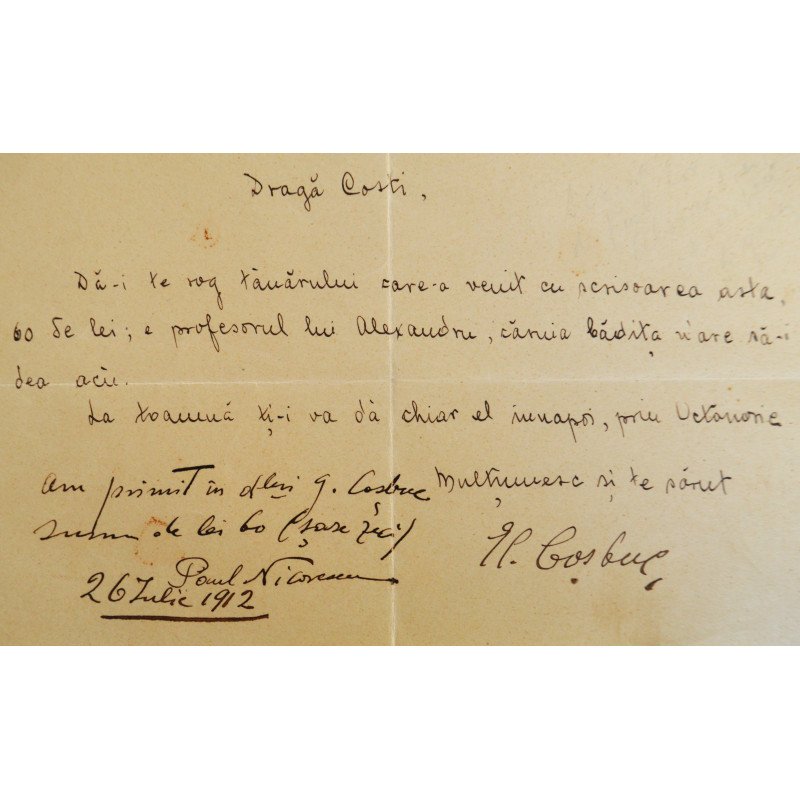 Dragă Costi,
Dă-i te rog tânărului care-a venit cu scrisoarea asta,
60 de lei; e profesorul lui Alexandru, căruia bădița n'are să-i
dea aciu.
La toamnă ți-i va dà chiar el innapoi, prin
Mulțumesc și te sărut
Coșbuc
Am primit în g. Cosbuc
suma de lei 60 (șase zeci)
Paul Nicorescu
26 Iulie 1912